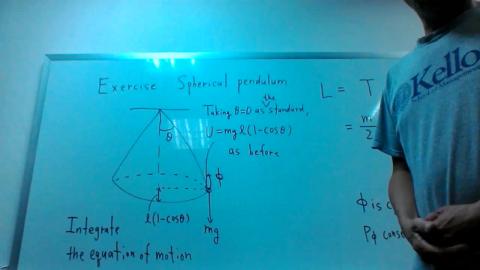 Exercise Spherical pendulum
the
Taking θ=0 as standard,
U = mgl(1-cosθ)
as before
θ
ϕ
l(1-cosθ)
mg
Integrate
the equation of motion
L = T
= m/2
ϕ is c
Pϕ conse
Kello